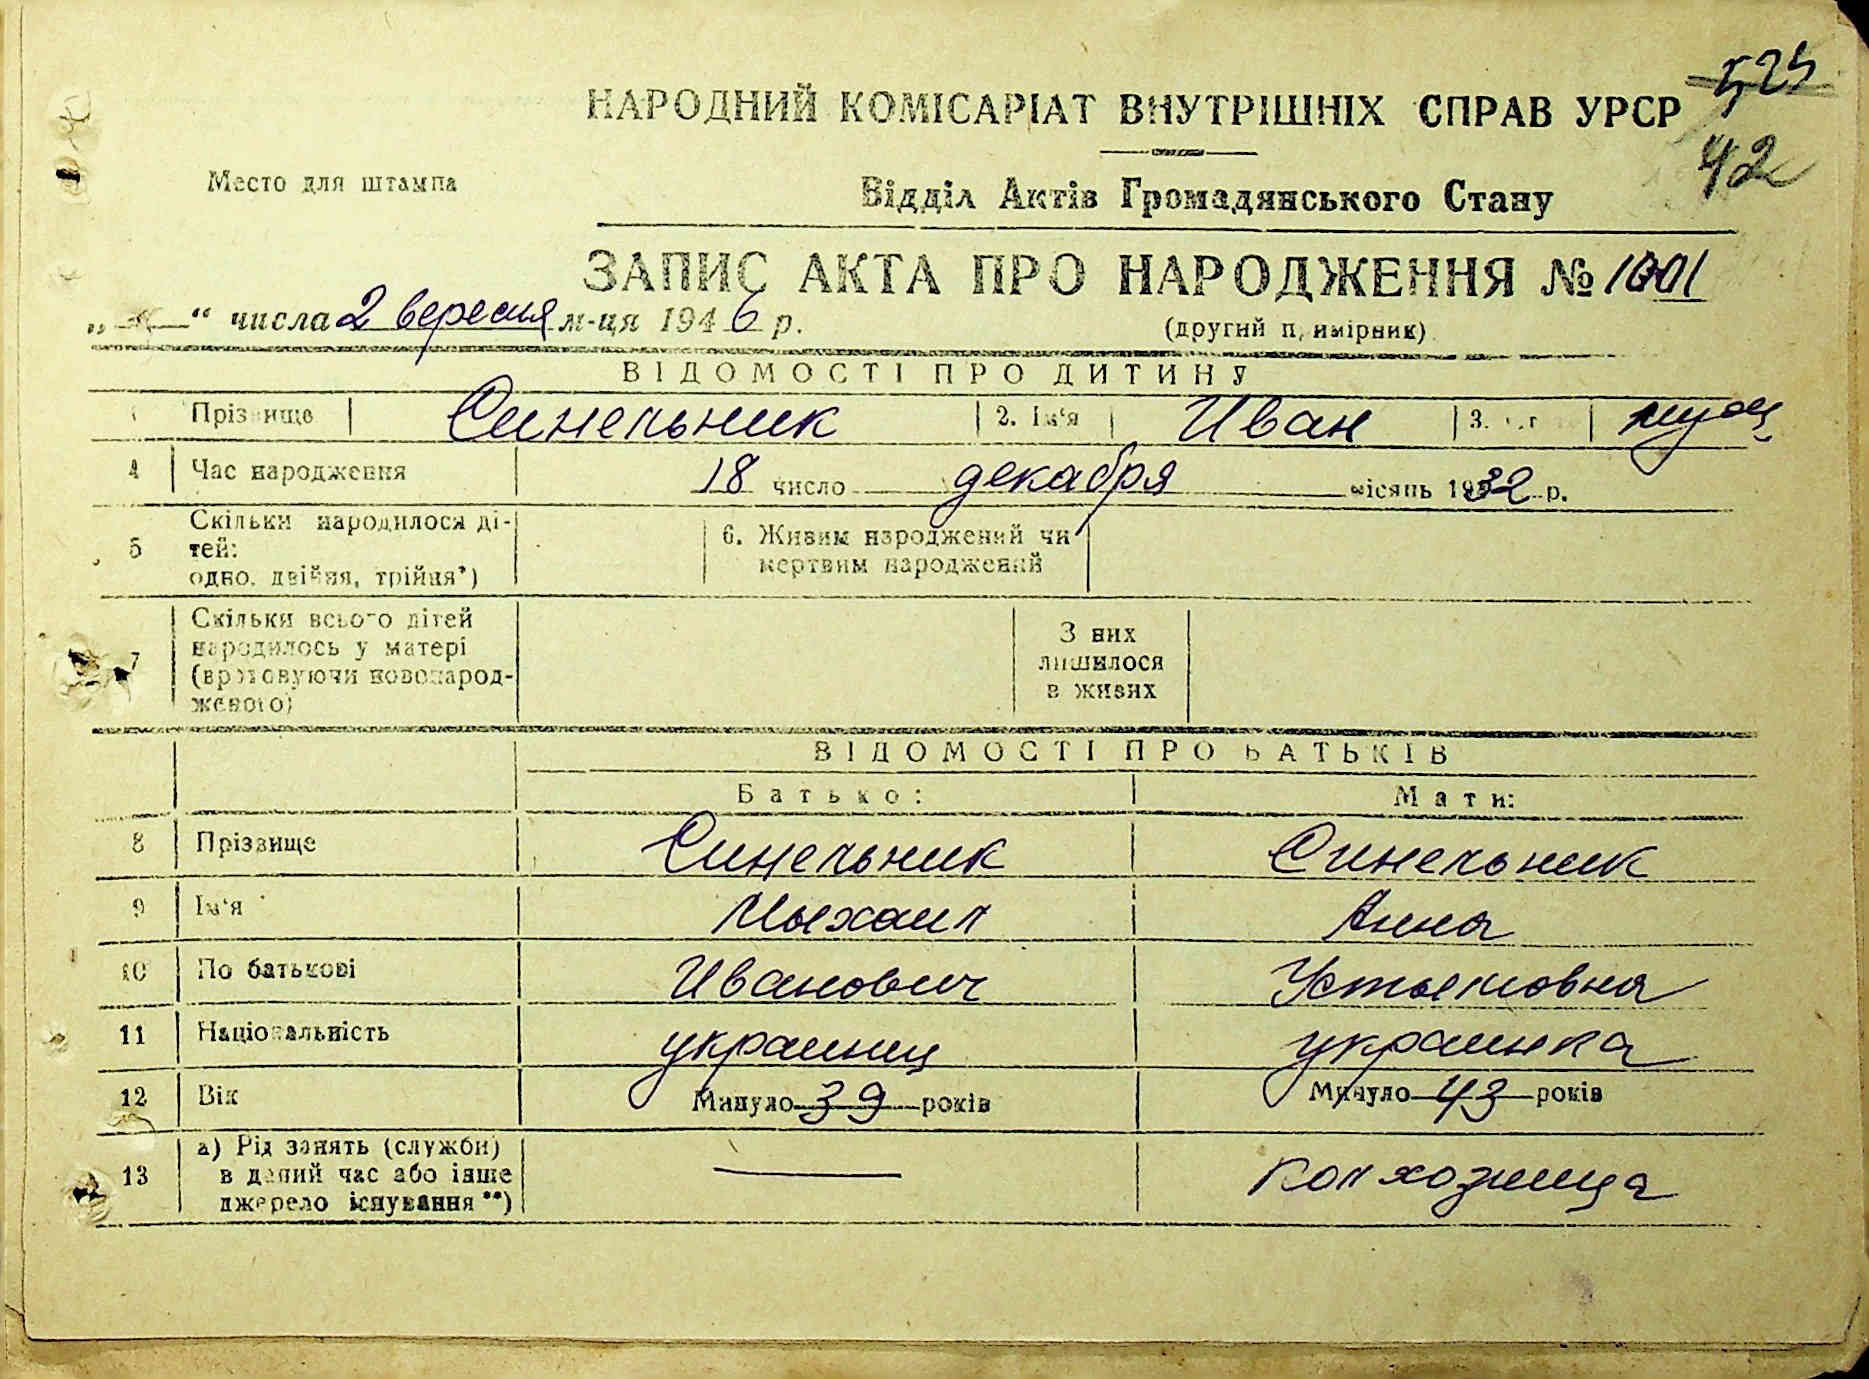 525
НАРОДНИЙ КОМІСАРІАТ ВНУТРІШНІХ СПРАВ УРСР
42
Место для штампа
Відділ Актів Громадянського Стану
ЗАПИС АКТА ПРО НАРОДЖЕННЯ № 1001
„ “ числа 2 вересня м-ця 1946 р.
(другий примірник)
ВІДОМОСТІ ПРО ДИТИНУ
Прізвище Синельник 2. Ім'я Иван 3. муж
4 Час народження 18 число декабря місяць 1932 р.
5 Скільки народилося ді-
тей:
одно, двійня, трійня*)
6. Живим народжений чи
мертвим народжений
7 Скільки всього дітей
народилось у матері
(враховуючи новонарод-
женого)
З них
лишилося
в живих
ВІДОМОСТІ ПРО БАТЬКІВ
Батько: Мати:
8 Прізвище Синельник Синельник
9 Ім'я Мыхаил Анна
10 По батькові Иванович
11 Національність украинец украинка
12 Вік Минуло 39 років Минуло 43 років
13 а) Рід занять (служби)
в даний час або інше
джерело існування**)
— колхозница